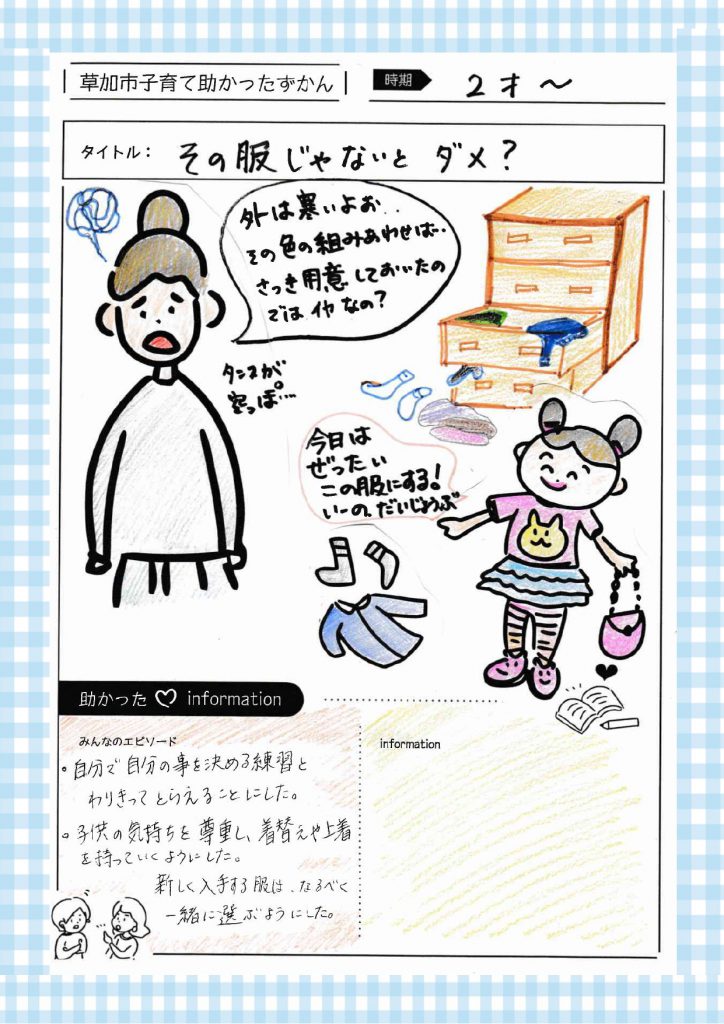 草加市子育て助かったずかん
時期
2才～
タイトル：
その服じゃないと ダメ？
外は寒いよぉ..
その色の組みあわせは..
さっき用意しておいたの
ではイヤなの？
タンスが
空っぽ....
今日は
ぜったい
この服にする！
いーの、だいじょうぶ
助かった♡information
みんなのエピソード
。自分で自分の事を決める練習と
わりきってとらえることにした。
。子供の気持ちを尊重し、着替えや上着
を持っていくようにした。
新しく入手する服は、なるべく
一緒に選ぶようにした。
information